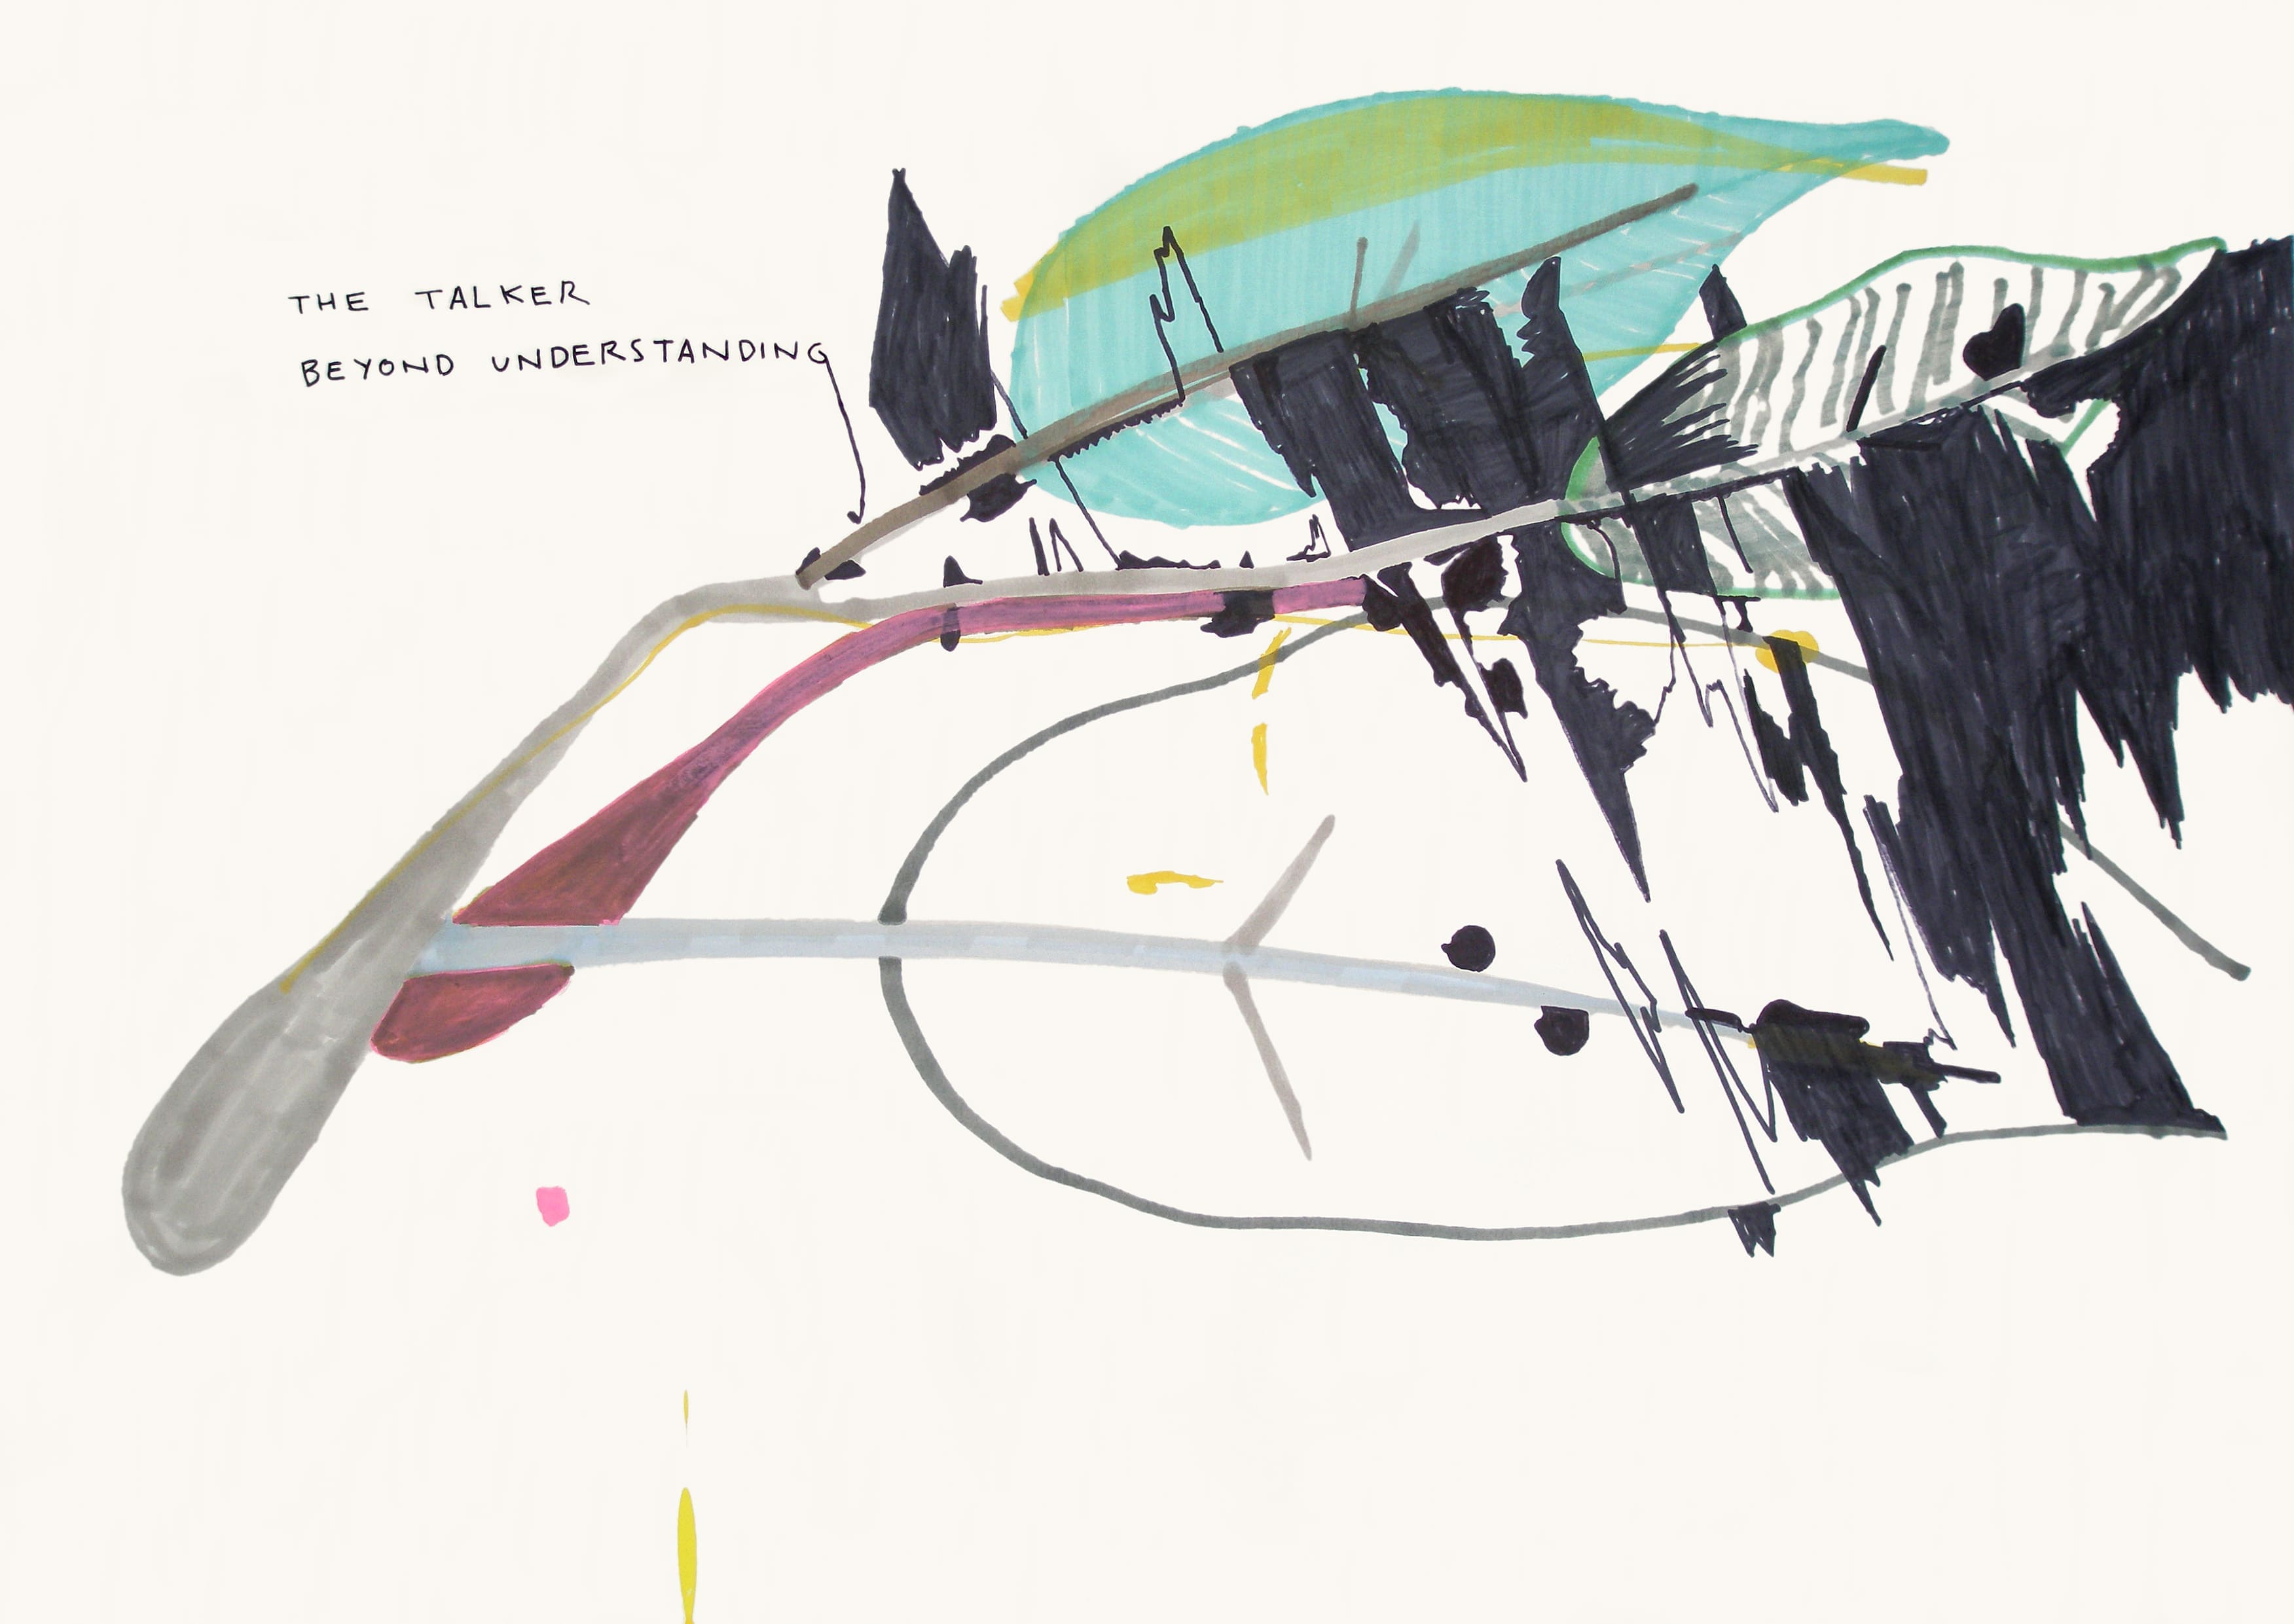 THE TALKER
BEYOND UNDERSTANDING